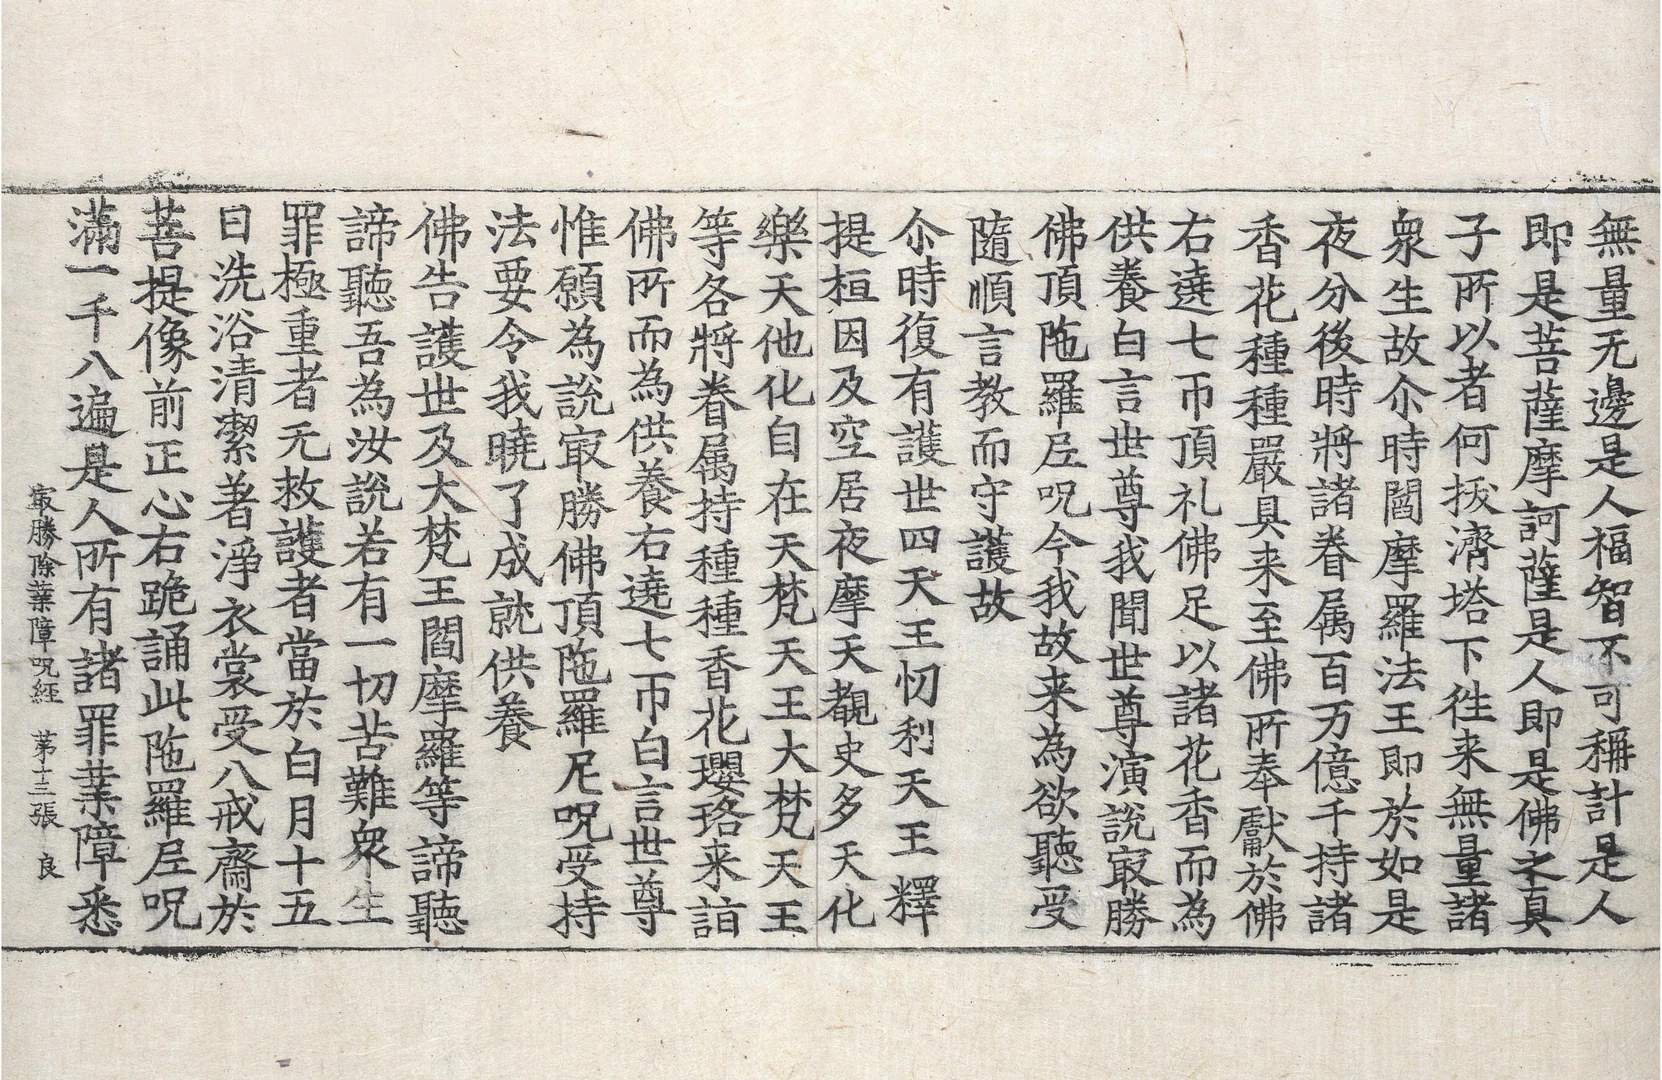 無量无邊是人福智不可稱計是人
即是菩薩摩訶薩是人即是佛之真
子所以者何拔濟塔下徃来無量諸
衆生故尒時閻摩羅法王即於如是
夜分後時將諸眷属百万億千持諸
香花種種嚴具来至佛所奉獻於佛
右遶七帀頂礼佛足以諸花香而為
供養白言世尊我聞世尊演說㝡勝
佛頂陁羅𡰱呪今我故来為欲聽受
隨順言教而守護故
尒時復有護世四天王忉利天王釋
提桓因及空居夜摩天覩史多天化
樂天他化自在天梵天王大梵天王
等各將眷属持種種香花瓔珞来詣
佛所而為供養右遶七帀白言世尊
惟願為説㝡勝佛頂陁羅尼呪受持
法要令我曉了成就供養
佛告護世及大梵王閻摩羅等諦聽
諦聽吾為汝說若有一切苦難衆生
罪極重者无救護者當於白月十五
日洗浴清潔著淨衣裳受八戒齋於
菩提像前正心右跪誦此陁羅𡰱呪
滿一千八遍是人所有諸罪業障悉
㝡勝除業障呪經 苐十三張 良